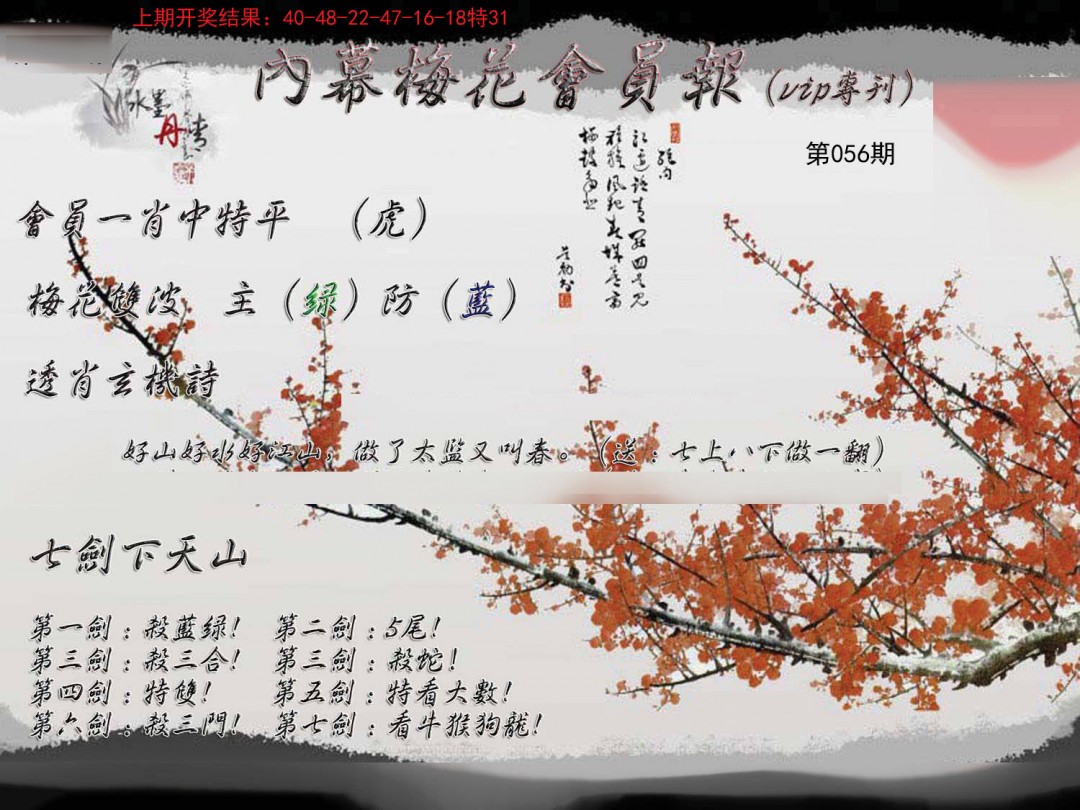 上期开奖结果：40-48-22-47-16-18特31
內幕梅花會員報（vip專刊）
水墨
丹青
第056期
會員一肖中特平 （虎）
梅花雙波 主（綠）防（藍）
透肖玄機詩
好山好水好江山，做了太监又叫春。（送：七上八下做一翻）
七劍下天山
第一劍：殺藍绿！ 第二劍：5尾！
第三劍：殺三合！ 第三劍：殺蛇！
第四劍：特雙！ 第五劍：特看大數！
第六劍：殺三門！ 第七劍：看牛猴狗龍！